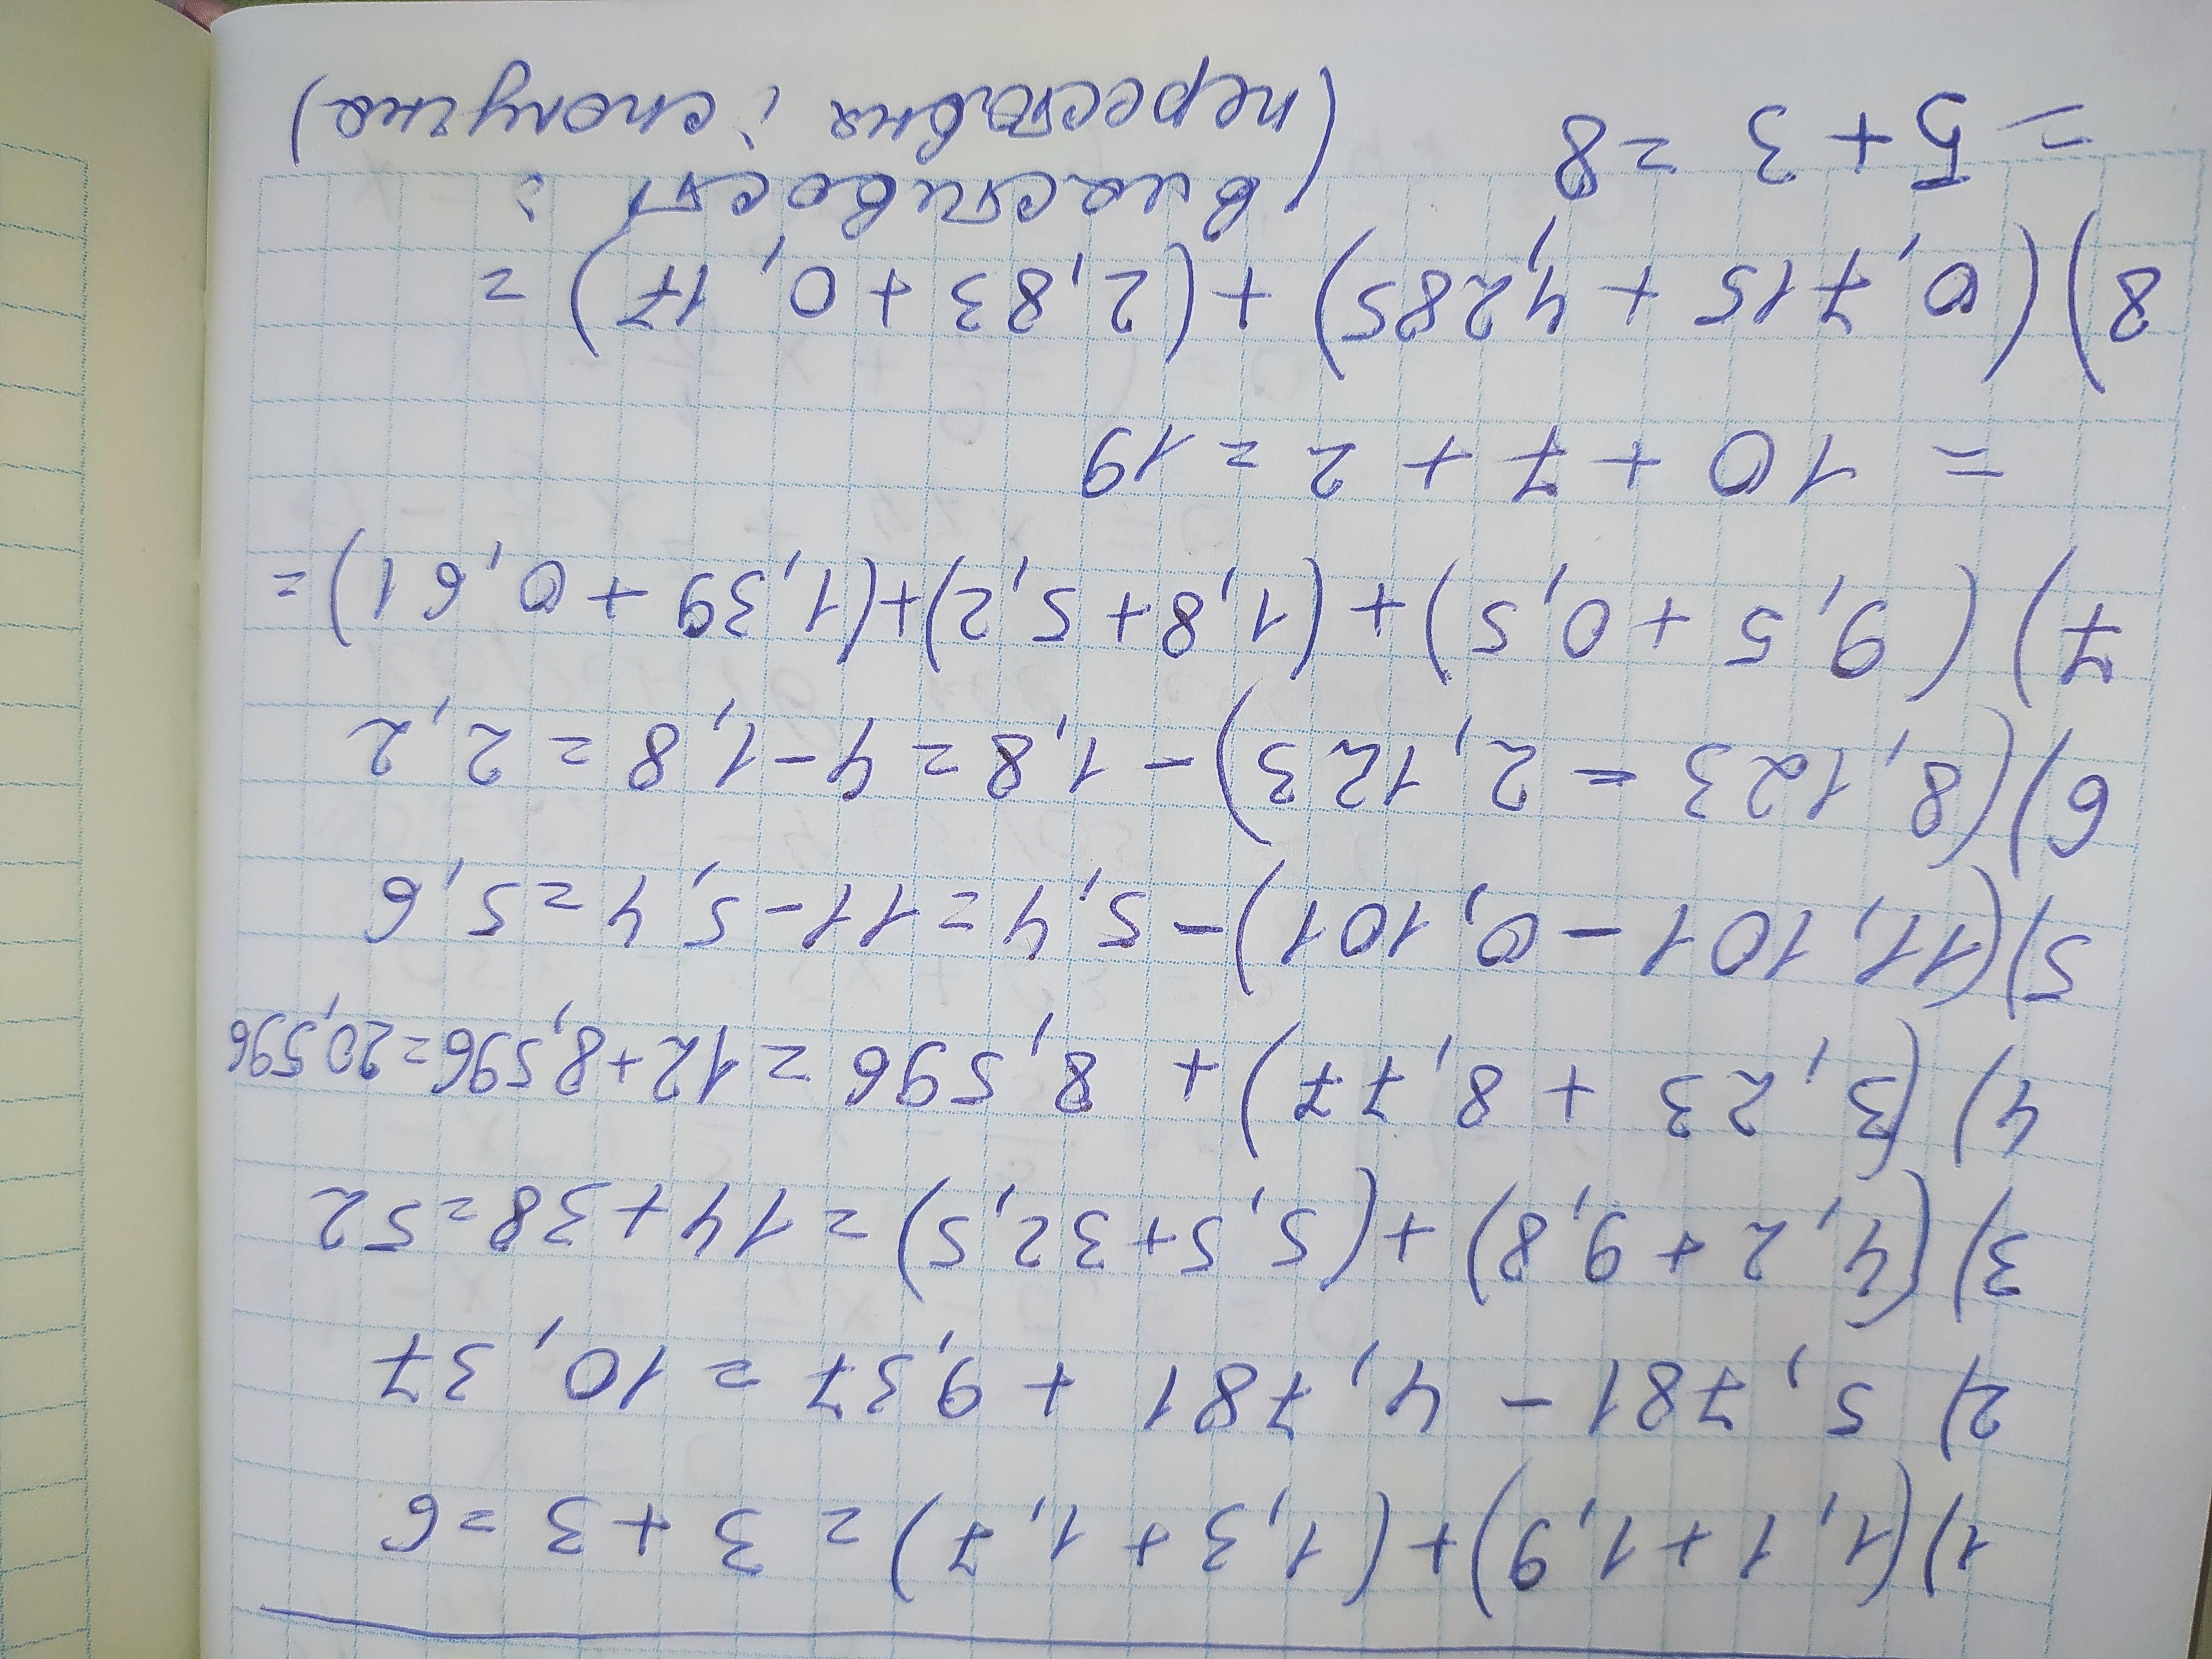 1) (1,1+1,9)+(1,3+1,7)=3+3=6
2) 5,781-4,781+9,37=10,37
3) (4,2+9,8)+(5,5+32,5)=14+38=52
4) (3,23+8,77)+8,596=12+8,596=20,596
5) (11,101-0,101)-5,4=11-5,4=5,6
6) (8,123=2,123)-1,8=4-1,8=2,2
7) (9,5+0,5)+(1,8+5,2)+(1,39+0,61)=
=10+7+2=19
8) (0,715+4,285)+(2,83+0,17)=
=5+3=8 (властивості:
(переставна і сполучна)